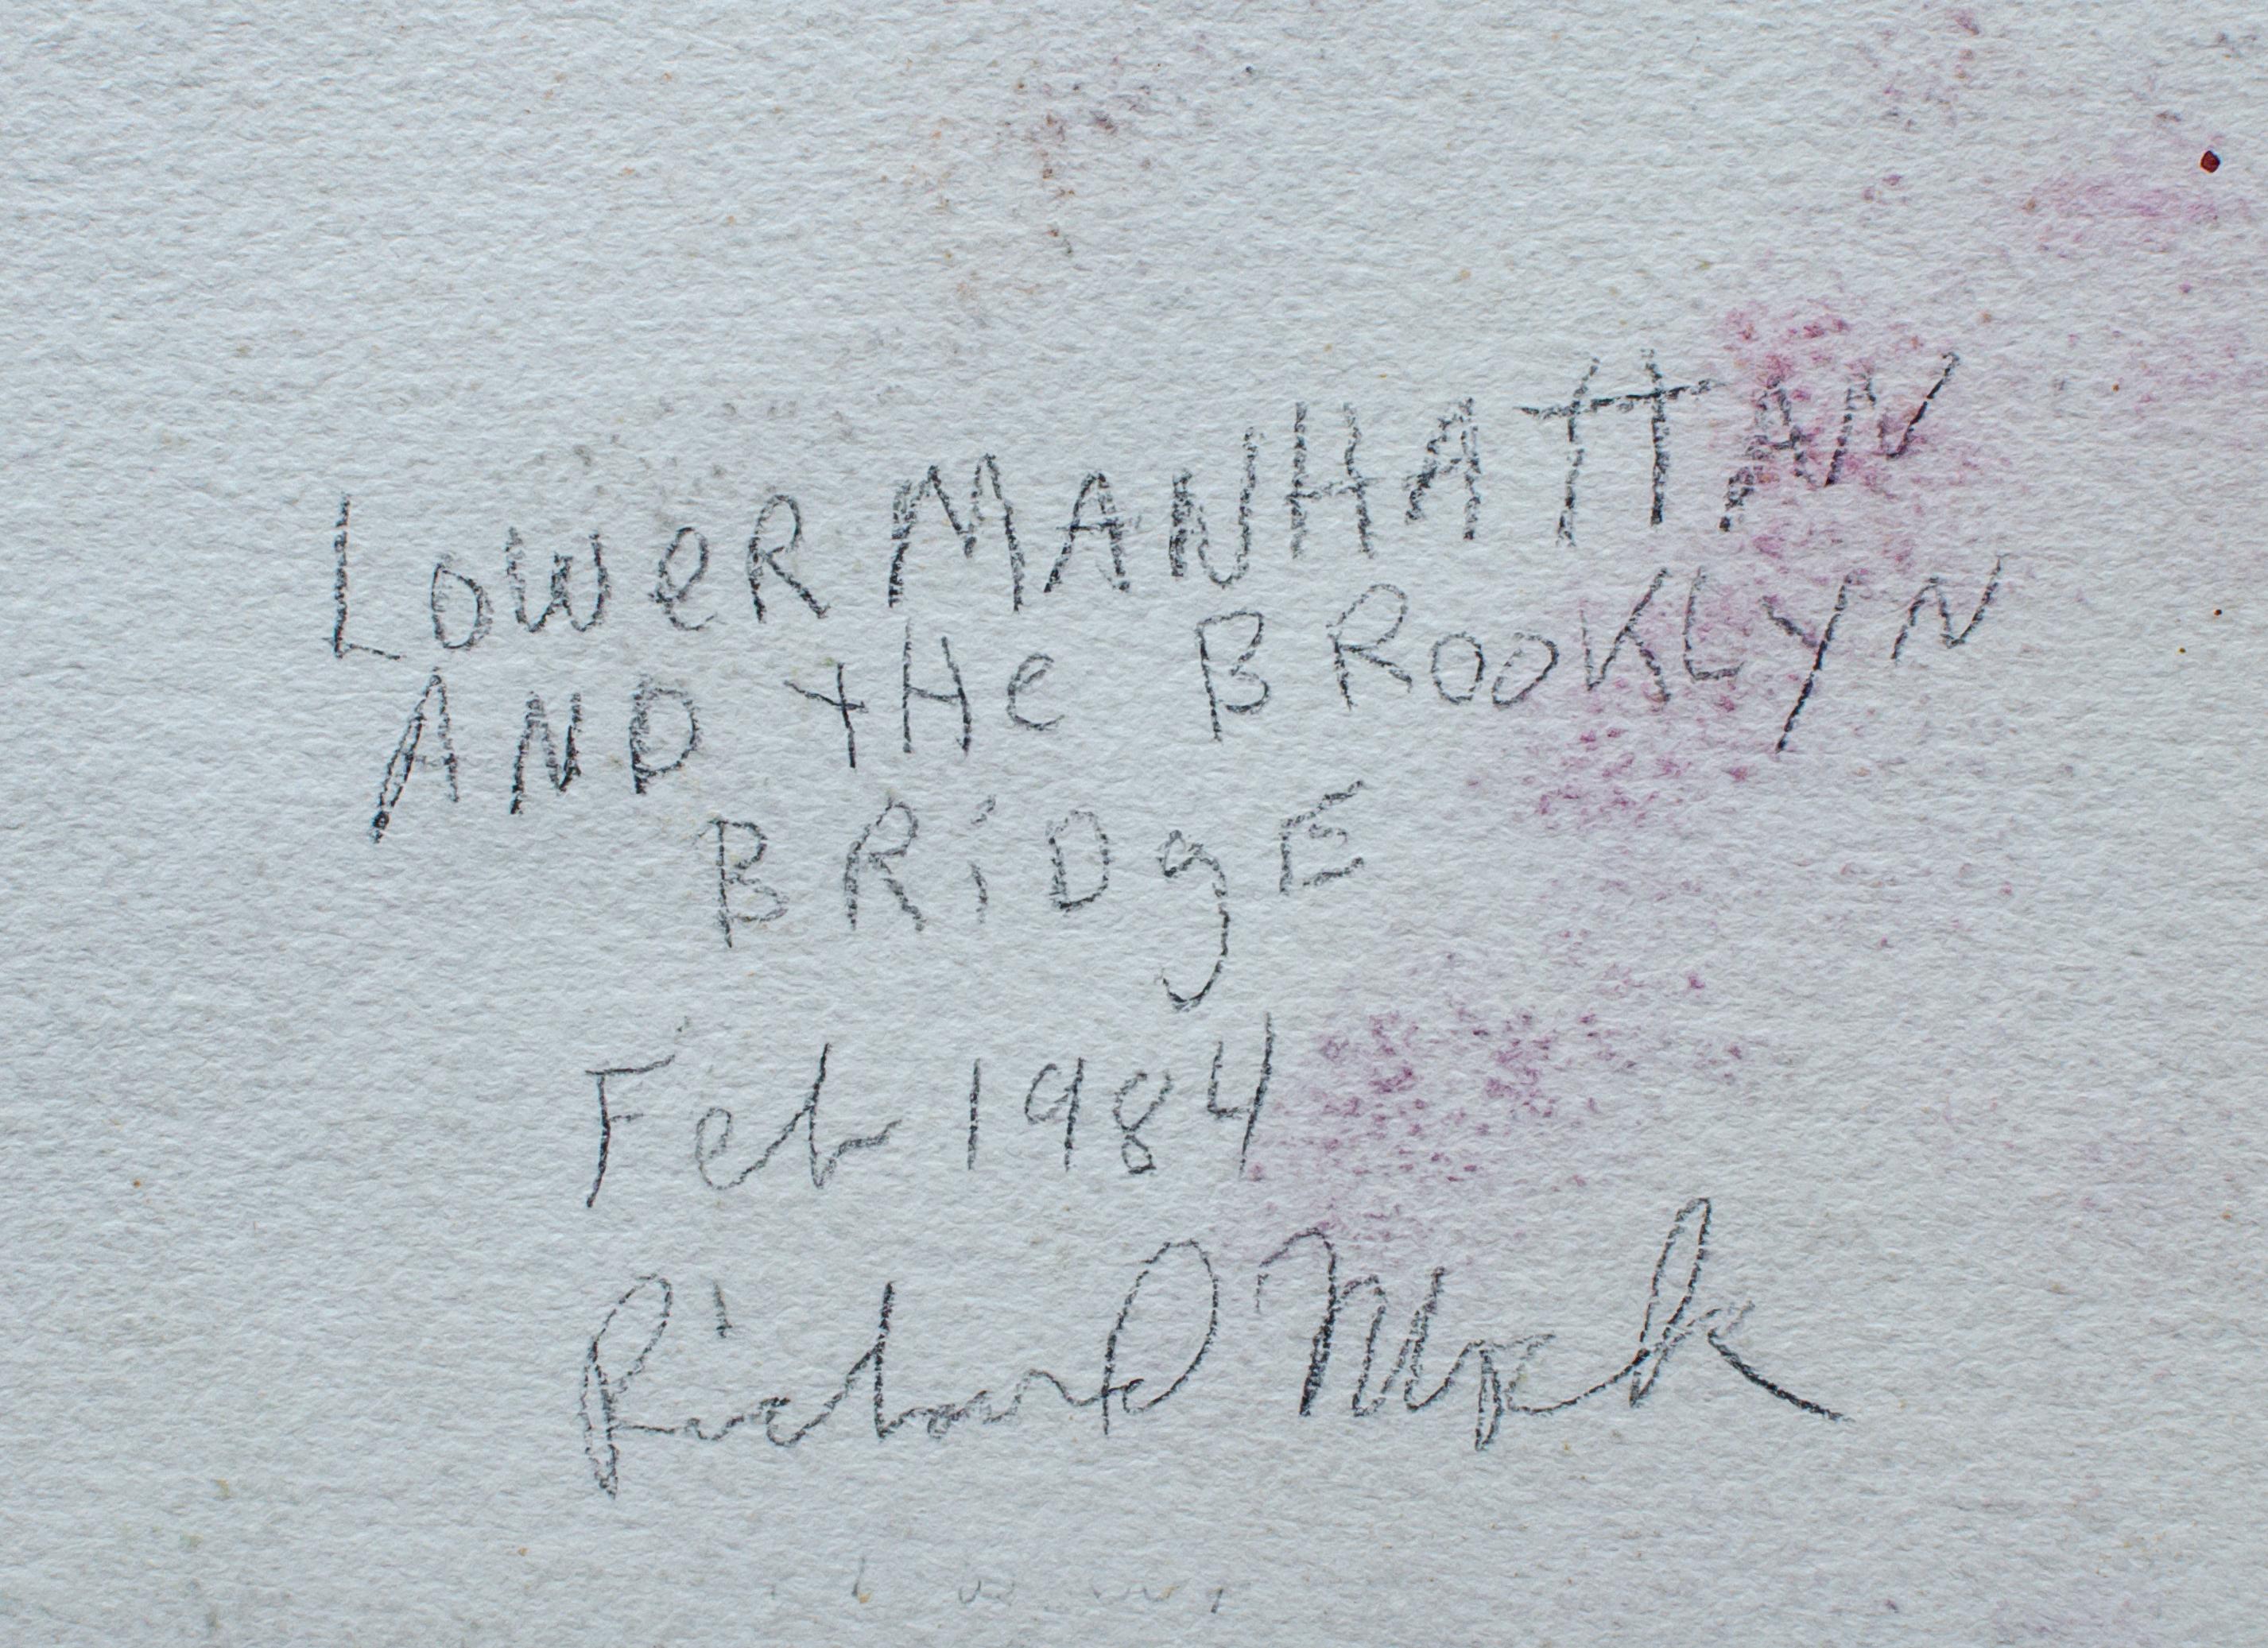 LOWeR MANHATTAN
AND tHe BROOKLYN
BRiDgE
Feb 1984
Richard Mock